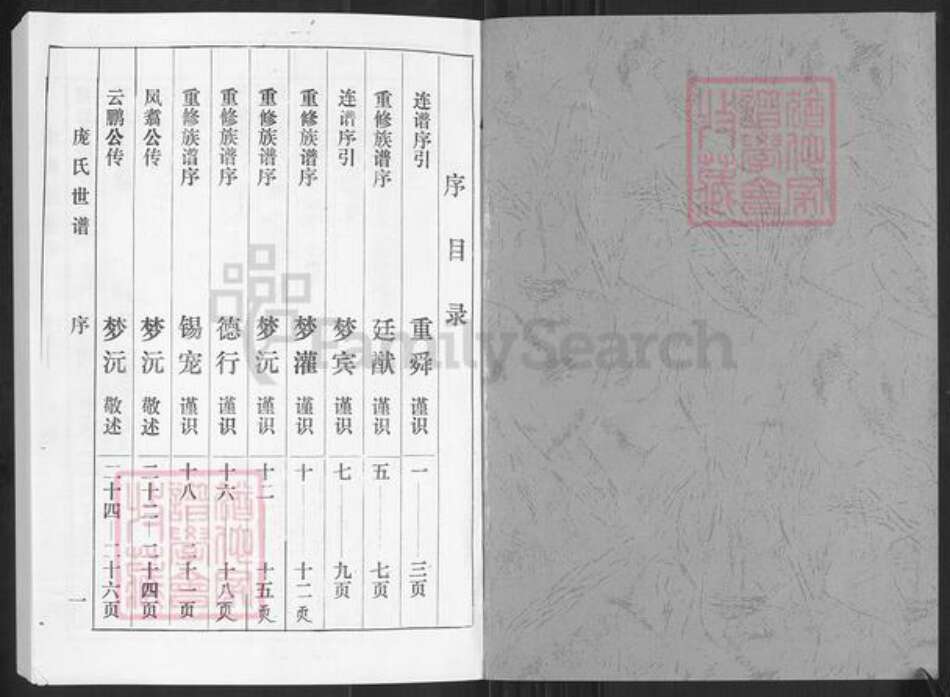 序目录
连谱序引 重舜 谨识 一——三页
重修族谱序 廷猷 谨识 五——七页
连谱序引 梦宾 谨识 七——九页
重修族谱序 梦灌 谨识 十——十二页
重修族谱序 梦沅 谨识 十二——十五页
重修族谱序 德行 谨识 十六——十八页
重修族谱序 锡宠 谨识 十八——二十一页
凤翥公传 梦沅 敬述 二十二——二十四页
云鹏公传 梦沅 敬述 二十四——二十六页
庞氏世谱 序 一
FamilySearch